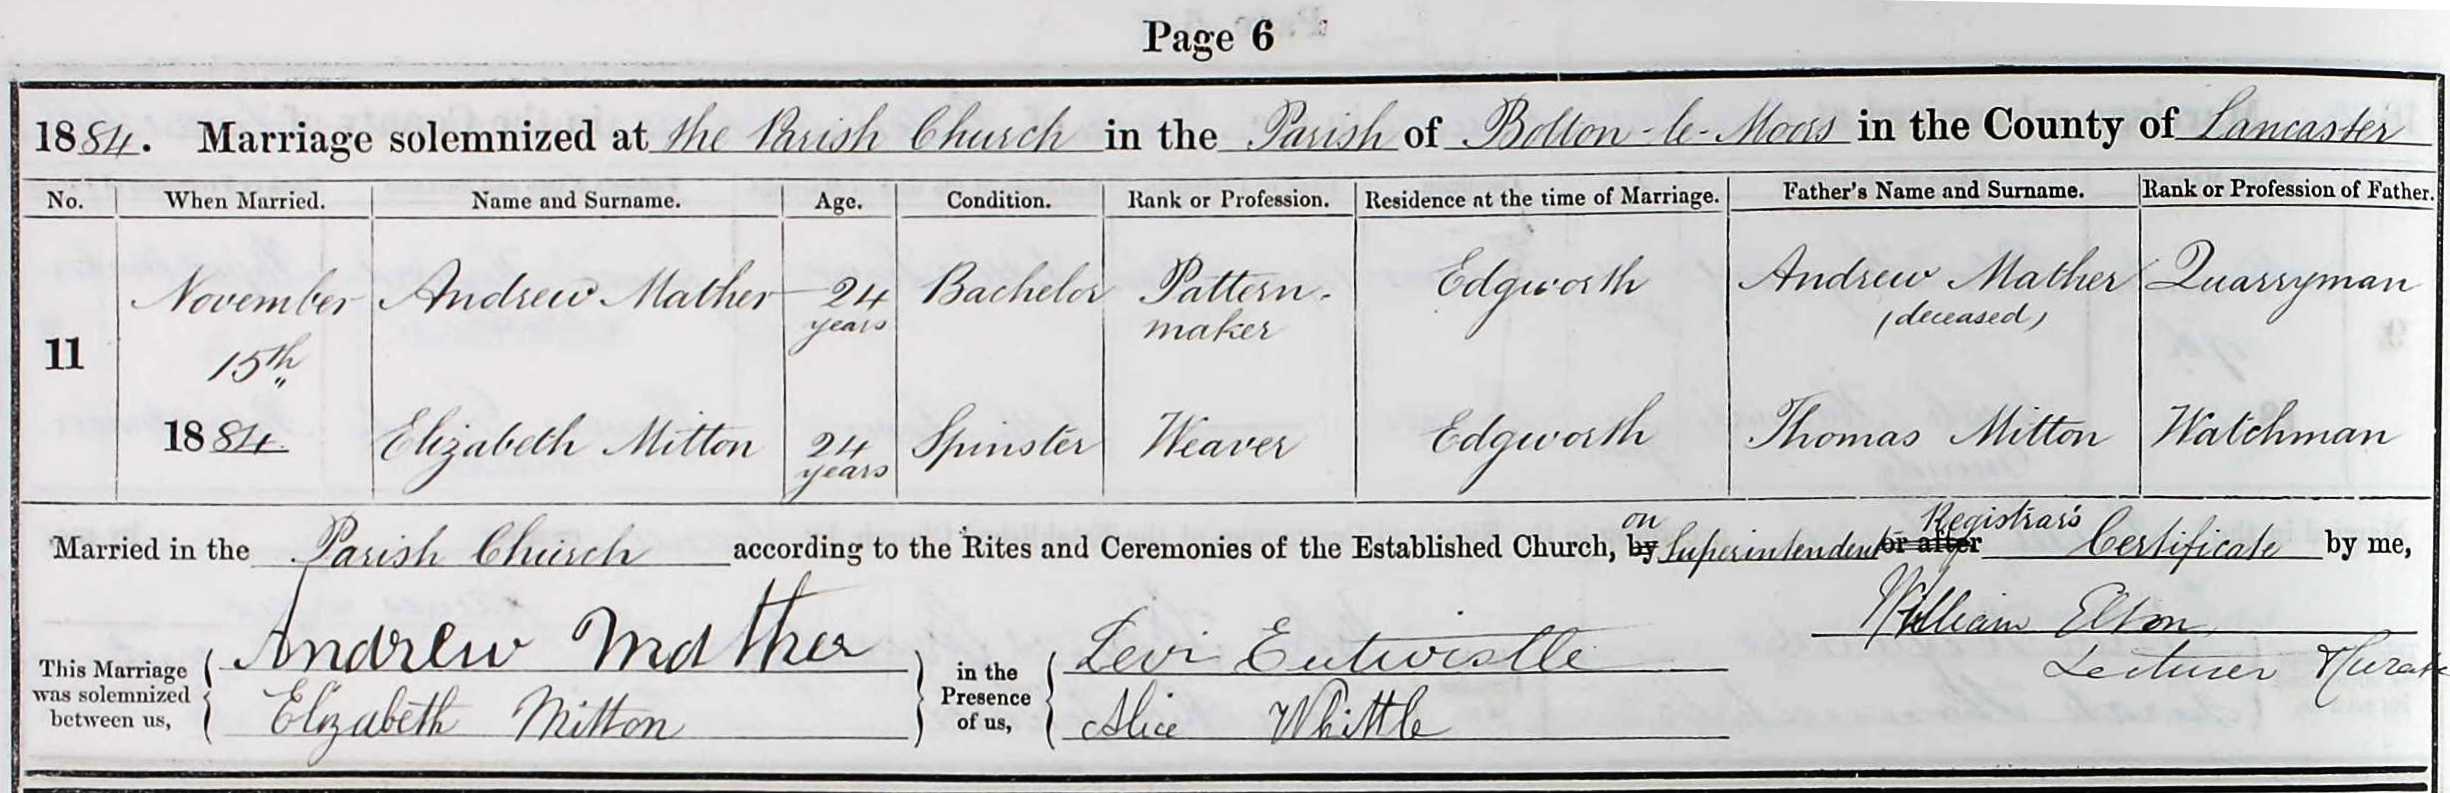 Page 6
1884. Marriage solemnized at the Parish Church in the Parish of Bolton-le-Moors in the County of Lancaster
No. When Married. Name and Surname. Age. Condition. Rank or Profession. Residence at the time of Marriage. Father's Name and Surname. Rank or Profession of Father.
November Andrew Mather 24 Bachelor Pattern- Edgworth Andrew Mather Quarryman
years maker (deceased)
11 15th
1884. Elizabeth Mitton 24 Spinster Weaver Edgworth Thomas Mitton Watchman
years
on Registrar's
Married in the Parish Church according to the Rites and Ceremonies of the Established Church, by Superintendent or after Certificate by me,
William Elton
Lecturer & Curate
This Marriage was solemnized between us, Andrew Mather in the Presence of us, Levi Entwistle
Elizabeth Mitton Alice Whittle